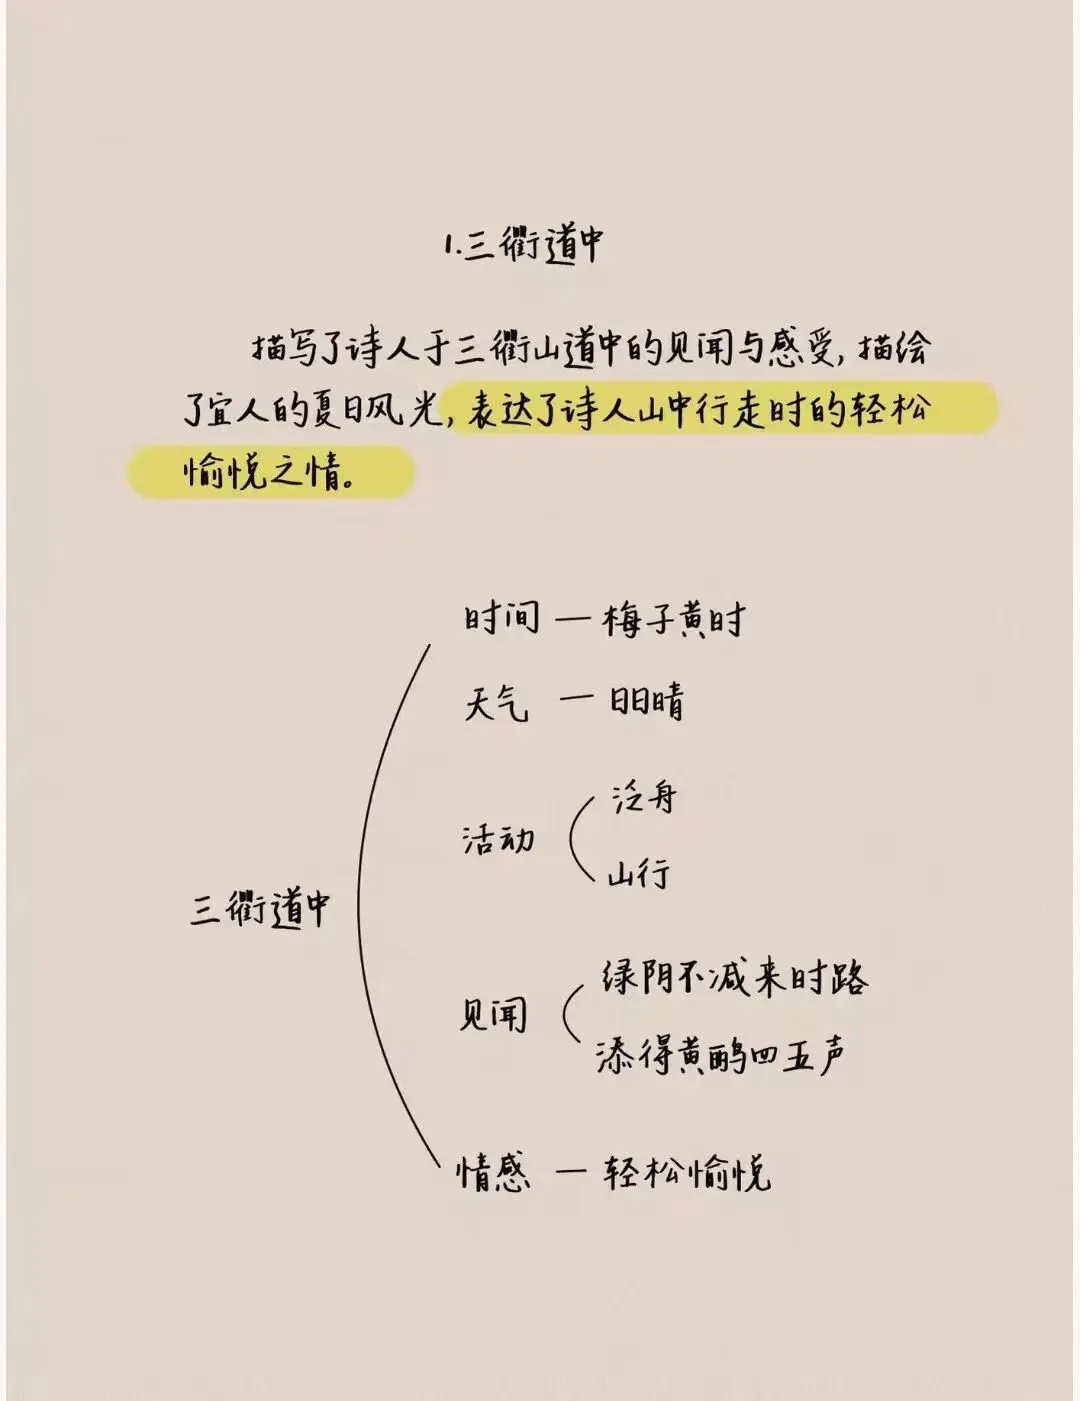 1.三衢道中
描写了诗人于三衢山道中的见闻与感受,描绘
了宜人的夏日风光,表达了诗人山中行走时的轻松
愉悦之情。
时间 — 梅子黄时
天气 — 日日晴
活动
泛舟
山行
三衢道中
见闻
绿阴不减来时路
添得黄鹂四五声
情感 — 轻松愉悦